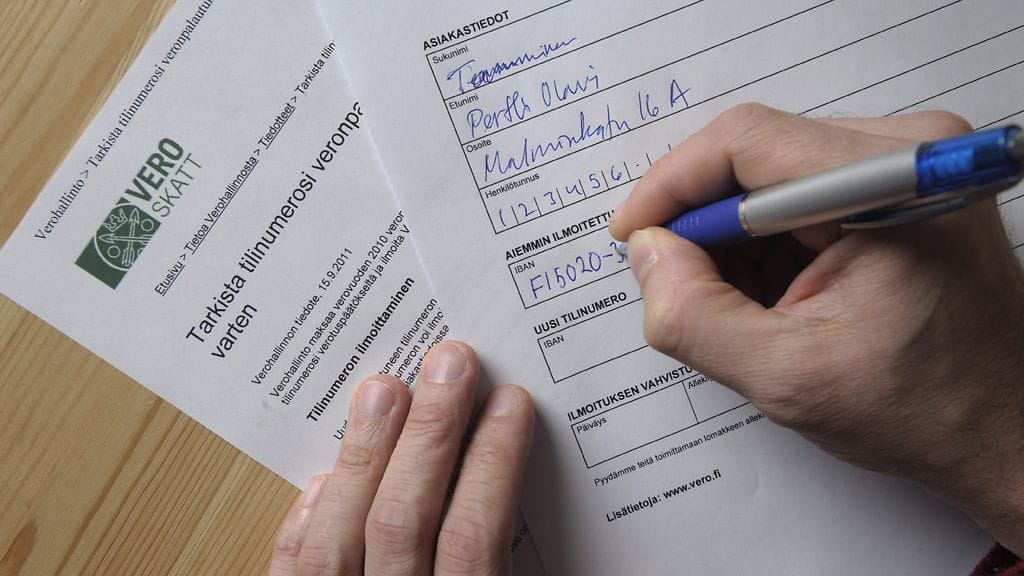 Verohallinto > Tarkista tilinumerosi veronpalautu
VERO
SKATT
Etusivu > Tietoa Verohallinnosta > Tiedotteet > Tarkista tilin
Tarkista tilinumerosi veronpa
varten
Verohallinnon tiedote, 15.9.2011
Verohallinto maksaa verovuoden 2010 veron
tilinumerosi verouspäätökseltä ja ilmoita V
Tilinumeron ilmoittaminen
ASIAKASTIEDOT
Sukunimi
Etunimi
Pertti Olavi
Osoite
Malminkatu 16 A
Henkilötunnus
1 2 3 4 5 6 -
AIEMMIN ILMOITETTU
IBAN
FI5020-3
UUSI TILINUMERO
IBAN
ILMOITUKSEN VAHVISTU
Päiväys
Allekirj
Pyydämme teitä toimittamaan lomakkeen allek
Lisätietoja: www.vero.fi